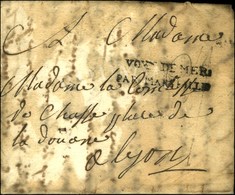 A Madame
VOYE DE MER
PAR MARSEILLE
Madame la Comtesse
de Chasse place de
la douane
a Lyon